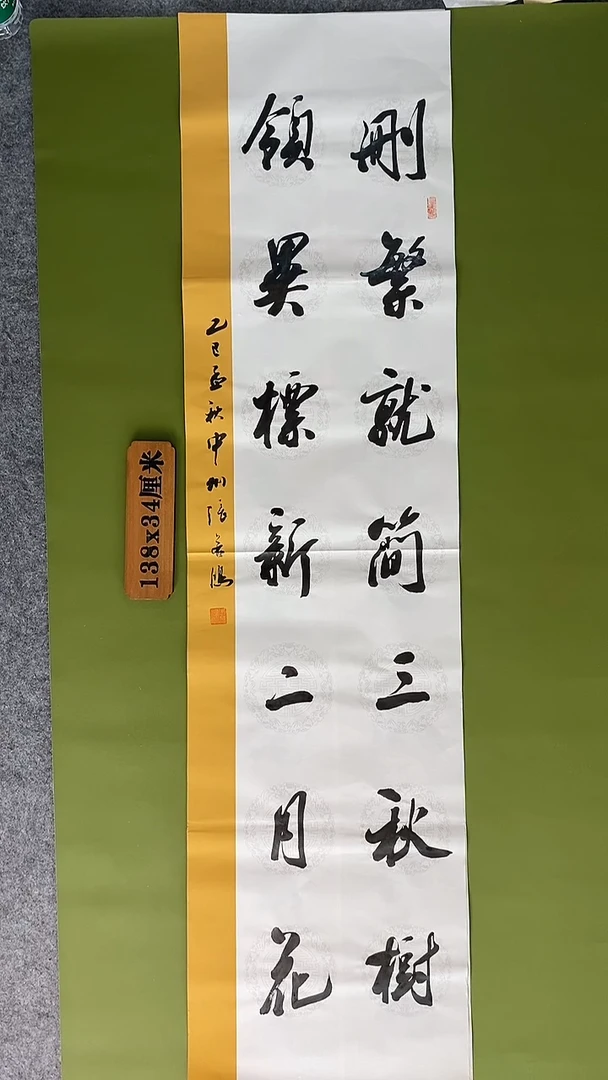 刪繁就簡三秋樹
領異標新二月花
乙巳孟秋申州張
138x34厘米